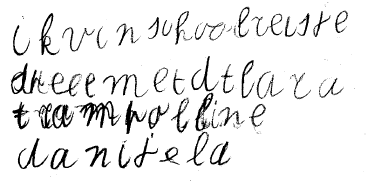 ikvinschoolreiste
dreeemetdtlara
trampolline
danitela